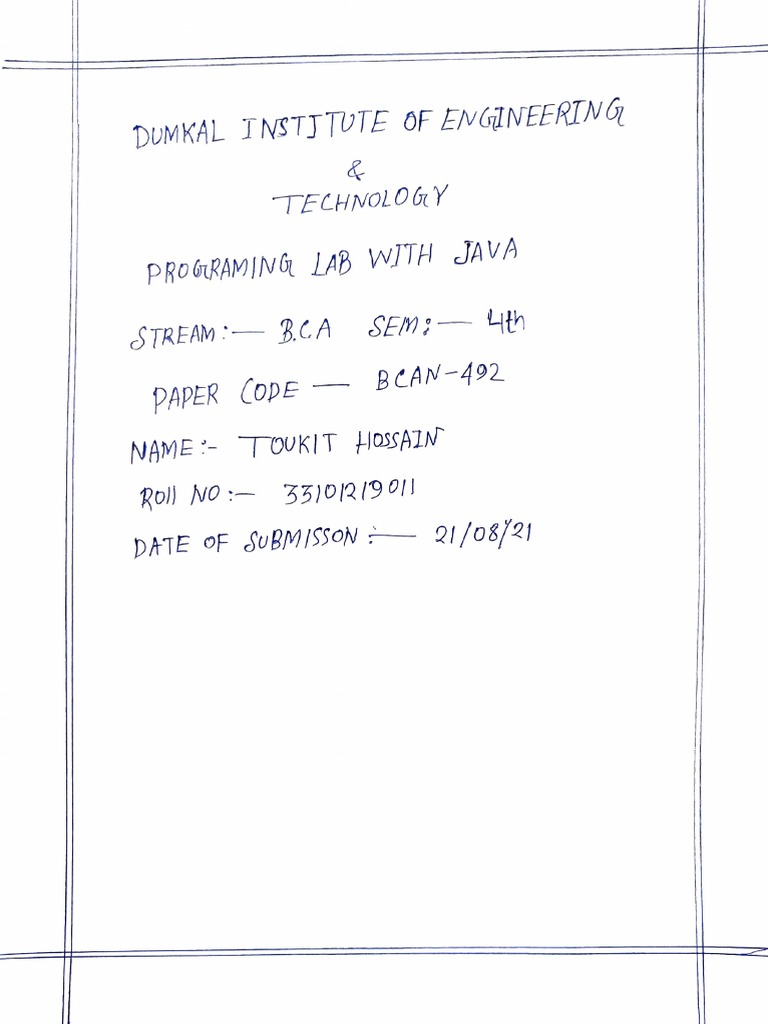 DUMKAL INSTITUTE OF ENGINEERING
&
TECHNOLOGY
PROGRAMING LAB WITH JAVA
STREAM:— B.CA SEM:— 4th
PAPER CODE — BCAN-492
NAME:- TOUKIT HOSSAIN
Roll NO:— 33101219011
DATE OF SUBMISSON:— 21/08/21